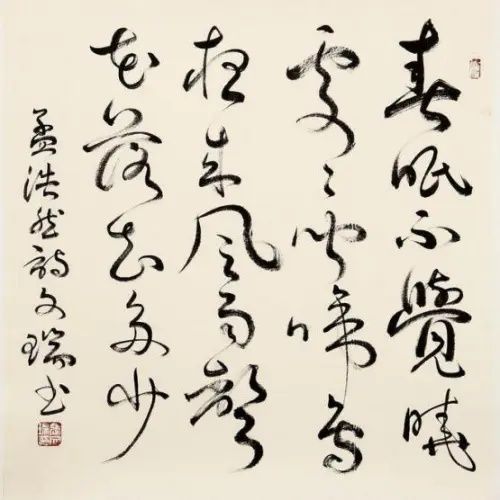 春眠不覺曉
處〻聞啼鳥
夜來風雨聲
花落知多少
孟浩然詩文瑞書